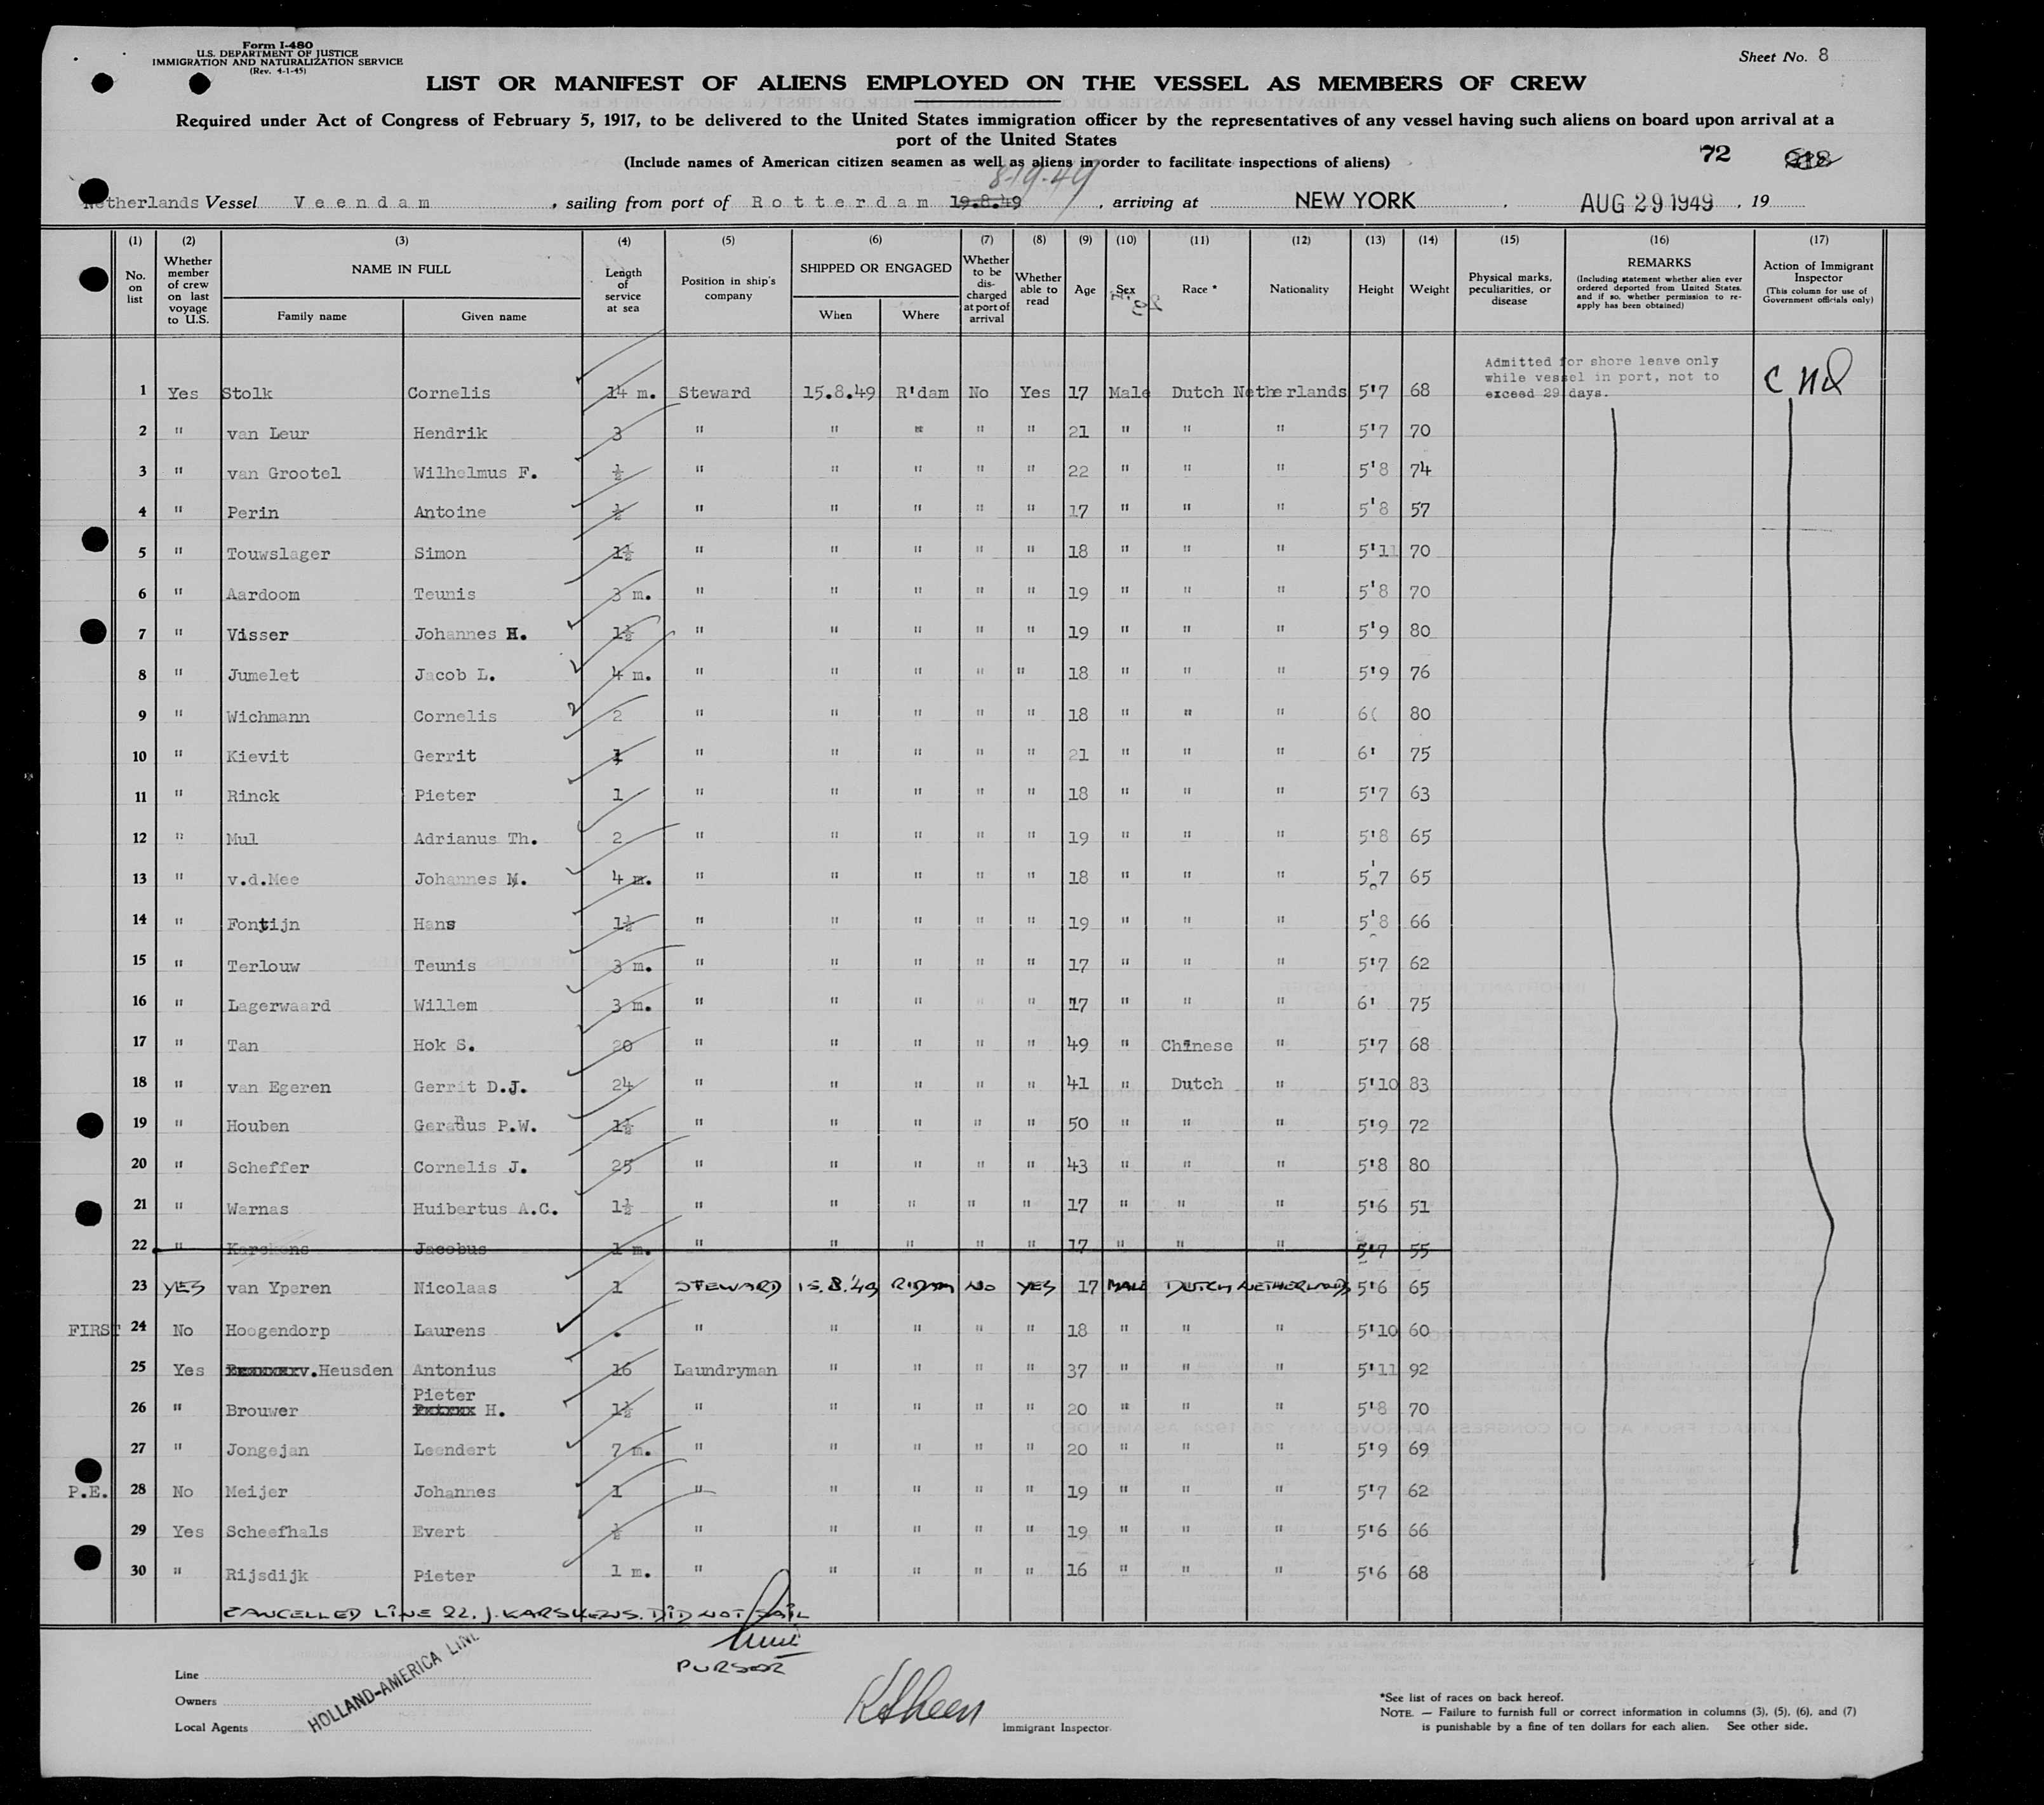 Form I-480
U.S. DEPARTMENT OF JUSTICE
IMMIGRATION AND NATURALIZATION SERVICE
(Rev. 4-1-45)
Sheet No. 8
LIST OR MANIFEST OF ALIENS EMPLOYED ON THE VESSEL AS MEMBERS OF CREW
Required under Act of Congress of February 5, 1917, to be delivered to the United States immigration officer by the representatives of any vessel having such aliens on board upon arrival at a
port of the United States
(Include names of American citizen seamen as well as aliens in order to facilitate inspections of aliens)
72
8-19-49
Netherlands Vessel Veendam, sailing from port of Rotterdam 19.8.49, arriving at NEW YORK, AUG 29 1949, 19
(1) (2) (3) (4) (5) (6) (7) (8) (9) (10) (11) (12) (13) (14) (15) (16) (17)
No. on list
Whether member of crew on last voyage to U.S.
NAME IN FULL
Family name
Given name
Length of service at sea
Position in ship's company
SHIPPED OR ENGAGED
When
Where
Whether to be discharged at port of arrival
Whether able to read
Age
Sex
Race *
Nationality
Height
Weight
Physical marks, peculiarities, or disease
REMARKS
(Including statement whether alien ever ordered deported from United States, and if so, whether permission to re-apply has been obtained)
Action of Immigrant Inspector
(This column for use of Government officials only)
Admitted for shore leave only
while vessel in port, not to
exceed 29 days.
1 Yes Stolk Cornelis 14 m. Steward 15.8.49 R'dam No Yes 17 Male Dutch Netherlands 5'7 68
2 " van Leur Hendrik 3 " " " " " 21 " " " 5'7 70
3 " van Grootel Wilhelmus F. ½ " " " " " 22 " " " 5'8 74
4 " Perin Antoine ½ " " " " " 17 " " " 5'8 57
5 " Touwslager Simon 1½ " " " " " 18 " " " 5'11 70
6 " Aardoom Teunis 3 m. " " " " " 19 " " " 5'8 70
7 " Visser Johannes H. 1½ " " " " " 19 " " " 5'9 80
8 " Jumelet Jacob L. 4 m. " " " " " 18 " " " 5'9 76
9 " Wichmann Cornelis 2 " " " " " 18 " " " 6( 80
10 " Kievit Gerrit 1 " " " " " 21 " " " 6' 75
11 " Rinck Pieter 1 " " " " " 18 " " " 5'7 63
12 " Mul Adrianus Th. 2 " " " " " 19 " " " 5'8 65
13 " v.d.Mee Johannes M. 4 m. " " " " " 18 " " " 5'7 65
14 " Fontijn Hans 1½ " " " " " 19 " " " 5'8 66
15 " Terlouw Teunis 3 m. " " " " " 17 " " " 5'7 62
16 " Lagerwaard Willem 3 m. " " " " " 17 " " " 6' 75
17 " Tan Hok S. 20 " " " " " 49 " Chinese " 5'7 68
18 " van Egeren Gerrit D.J. 24 " " " " " 41 " Dutch " 5'10 83
19 " Houben Gerardus P.W. 1½ " " " " " 50 " " " 5'9 72
20 " Scheffer Cornelis J. 25 " " " " " 43 " " " 5'8 80
21 " Warnas Huibertus A.C. 1½ " " " " " 17 " " " 5'6 51
22 " Karskens Jacobus 1 m. " " " " " 17 " " " 5'7 55
23 YES van Yperen Nicolaas 1 STEWARD 15.8.'49 R'DAM NO YES 17 MALE DUTCH NETHERLANDS 5'6 65
FIRST 24 No Hoogendorp Laurens . " " " " " 18 " " " 5'10 60
25 Yes v.Heusden Antonius 16 Laundryman " " " " 37 " " " 5'11 92
Pieter
26 " Brouwer H. 1½ " " " " " 20 " " " 5'8 70
27 " Jongejan Leendert 7 m. " " " " " 20 " " " 5'9 69
P.E. 28 No Meijer Johannes 1 " " " " " 19 " " " 5'7 62
29 Yes Scheefhals Evert ½ " " " " " 19 " " " 5'6 66
30 " Rijsdijk Pieter 1 m. " " " " " 16 " " " 5'6 68
CANCELLED LINE 22. J. KARSKENS. DID NOT SAIL
PURSER
Line
Owners
Local Agents
HOLLAND-AMERICA LINE
Immigrant Inspector.
*See list of races on back hereof.
NOTE. — Failure to furnish full or correct information in columns (3), (5), (6), and (7)
is punishable by a fine of ten dollars for each alien. See other side.